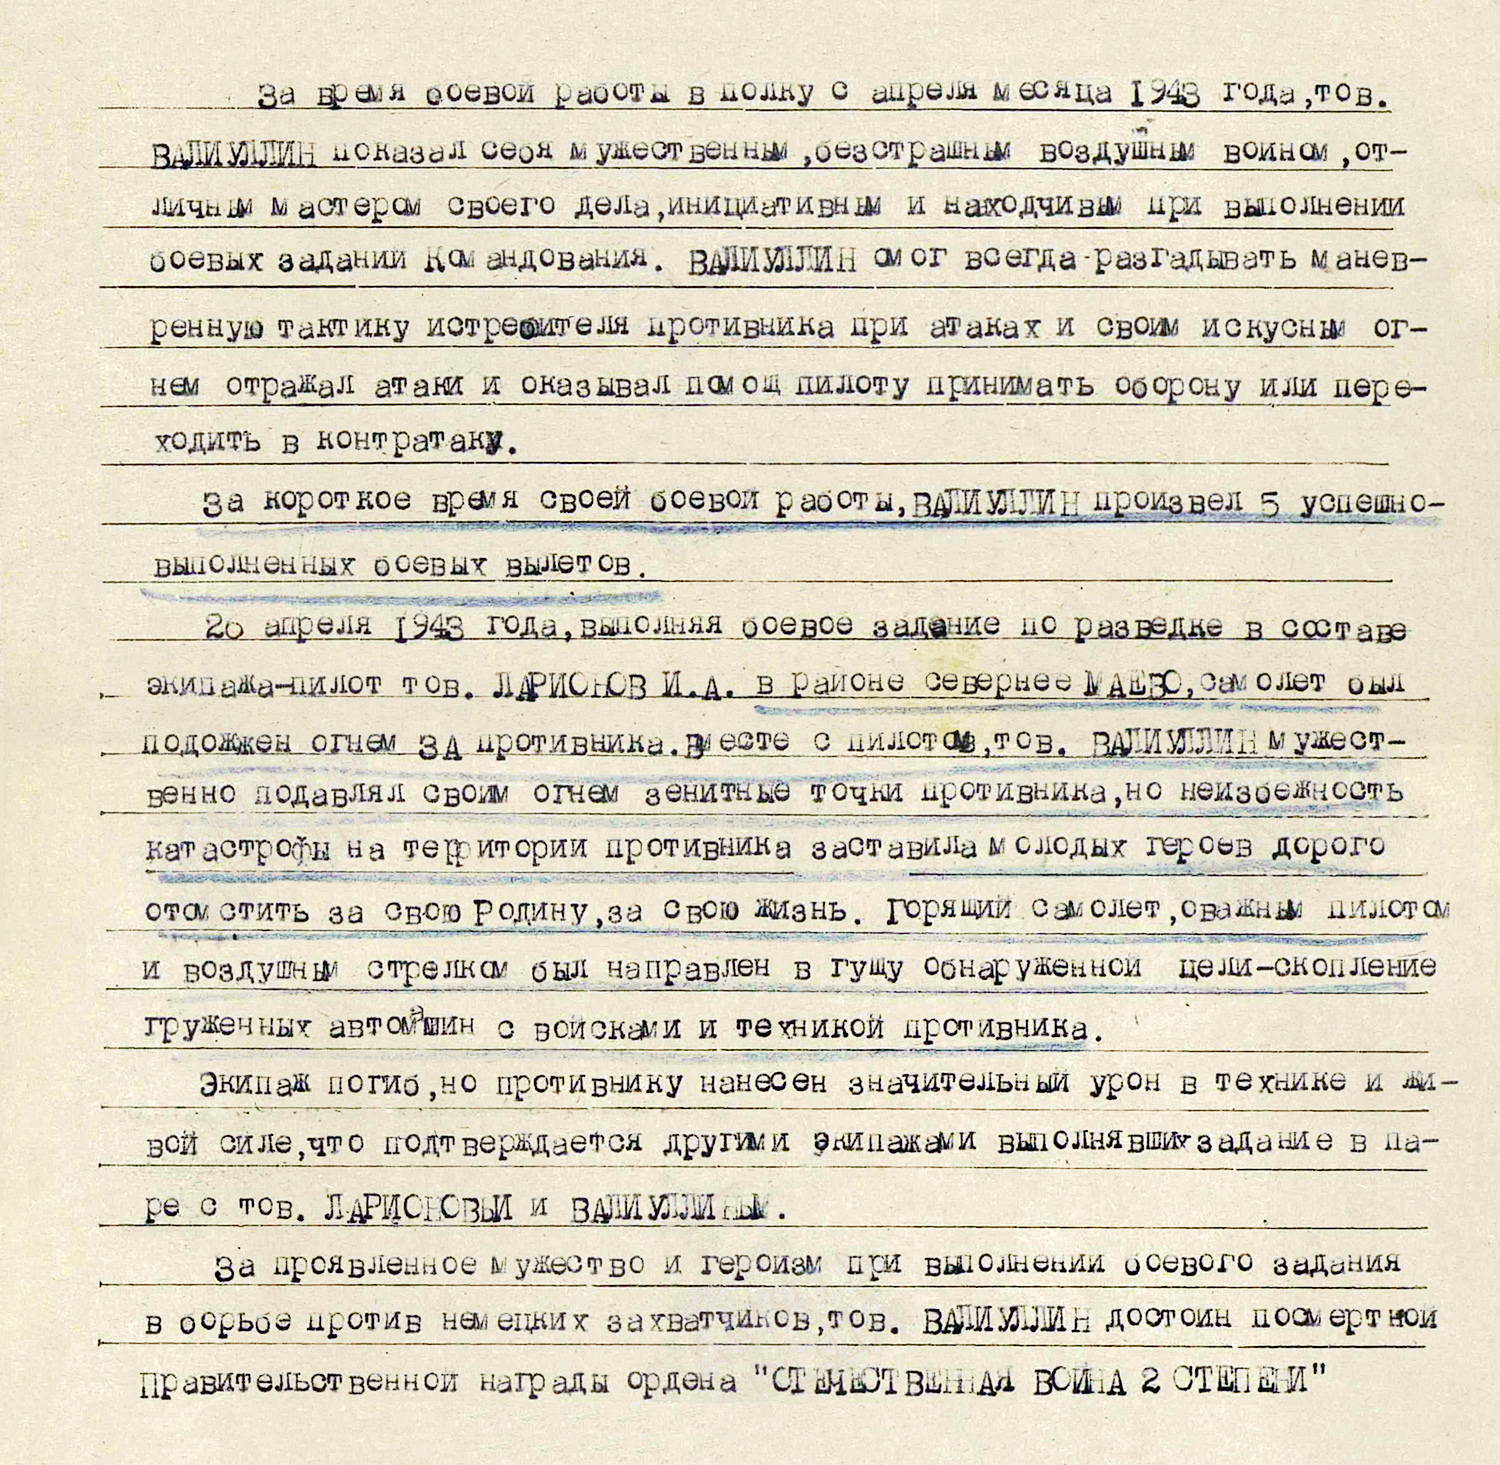 За время боевой работы в полку с апреля месяца 1943 года,тов.
ВАЛИУЛЛИН показал себя мужественным,безстрашным воздушным воином,от-
личным мастером своего дела,инициативным и находчивым при выполнении
боевых заданий Командования. ВАЛИУЛЛИН смог всегда разгадывать манев-
ренную тактику истребителя противника при атаках и своим искусным ог-
нем отражал атаки и оказывал помощ пилоту принимать оборону или пере-
ходить в контратаку.
За короткое время своей боевой работы,ВАЛИУЛЛИН произвел 5 успешно-
выполненных боевых вылетов.
26 апреля 1943 года,выполняя боевое задание по разведке в составе
экипажа-пилот тов. ЛАРИОНОВ И.А. в районе севернее МАЕВО,самолет был
подожжен огнем ЗА противника.Вместе с пилотом,тов. ВАЛИУЛЛИН мужест-
венно подавлял своим огнем зенитные точки противника,но неизбежность
катастрофы на территории противника заставила молодых героев дорого
отомстить за свою Родину,за свою жизнь. Горящий самолет,оважным пилотом
и воздушным стрелком был направлен в гущу обнаруженной цели-скопление
груженных автомашин с войсками и техникой противника.
Экипаж погиб,но противнику нанесен значительный урон в технике и жи-
вой силе,что подтверждается другими экипажами выполнявших задание в па-
ре с тов. ЛАРИОНОВЫМ и ВАЛИУЛЛИНЫМ.
За проявленное мужество и героизм при выполнении боевого задания
в борьбе против немецких захватчиков,тов. ВАЛИУЛЛИН достоин посмертной
Правительственной награды ордена "ОТЕЧЕСТВЕННАЯ ВОЙНА 2 СТЕПЕНИ"